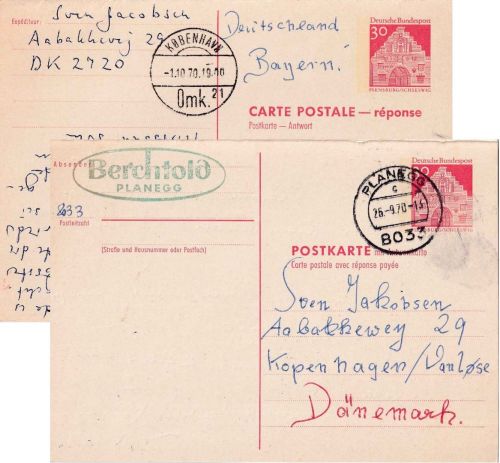 Expéditeur: Sven Jacobsen
Aabakkevej 29
DK 2720
KØBENHAVN
-1.10.70.19.00
Omk. 21
Deutschland
Bayern!
Deutsche Bundespost
30
FLENSBURG/SCHLESWIG
CARTE POSTALE — réponse
Postkarte - Antwort
Absender
Berchtold
PLANEGG
8033
Postleitzahl
(Straße und Hausnummer oder Postfach)
Deutsche Bundespost
PLANEGG
c
26.-9.70-15
8033
POSTKARTE
Carte postale avec réponse payée
Sven Jakobsen
Aabakkewey 29
Kopenhagen/Vanløse
Dänemark.